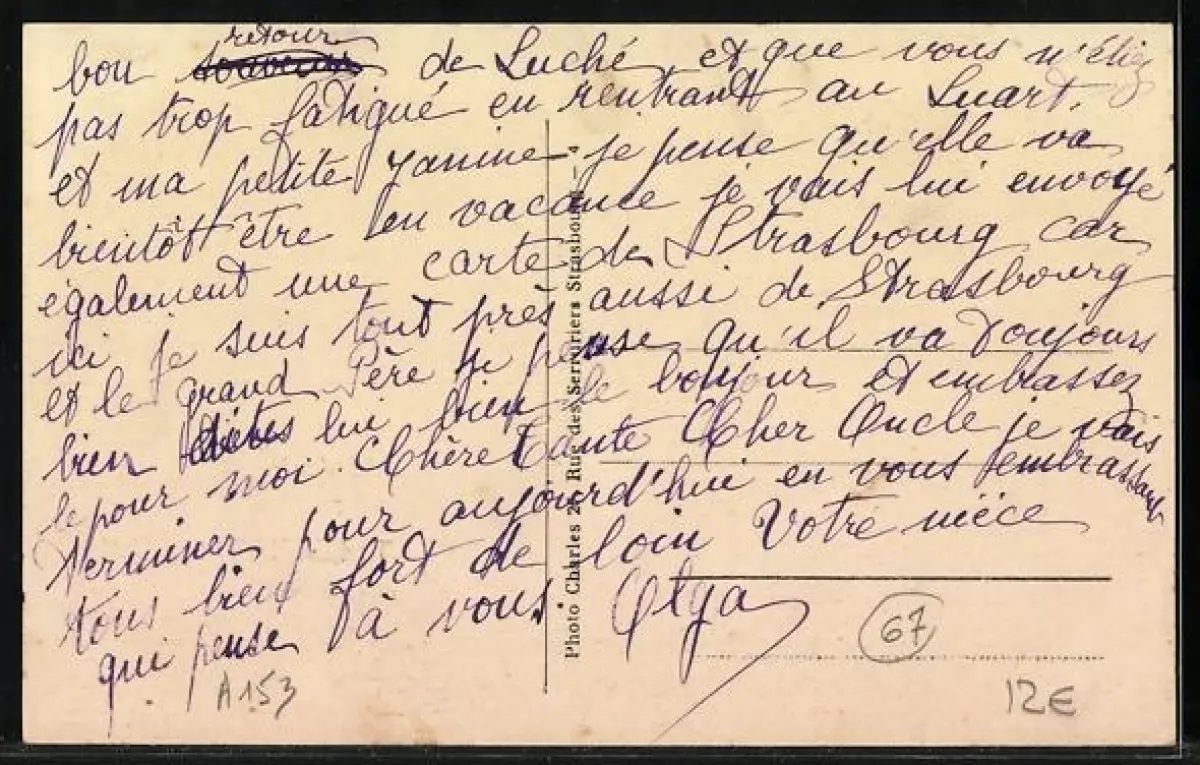 retour
bon de Luché, et que vous n'étiez
pas trop fatigué en rentrant au Luart,
et ma petite Janine je pense qu'elle va
bientôt être en vacance je vais lui envoyé
également une carte de Strasbourg car
ici je suis tout près aussi de Strasbourg
et le grand Père je pense qu'il va Toujours
bien dites lui bien le bonjour et embrassez
le pour moi. Chère Tante Cher Oncle je vais
Terminer pour aujourd'hui en vous embrassant
tous bien fort de loin Votre nièce
qui pense à vous Olga
Photo Charles 26 Rue des Serruriers Strasbourg
67
A153
12€